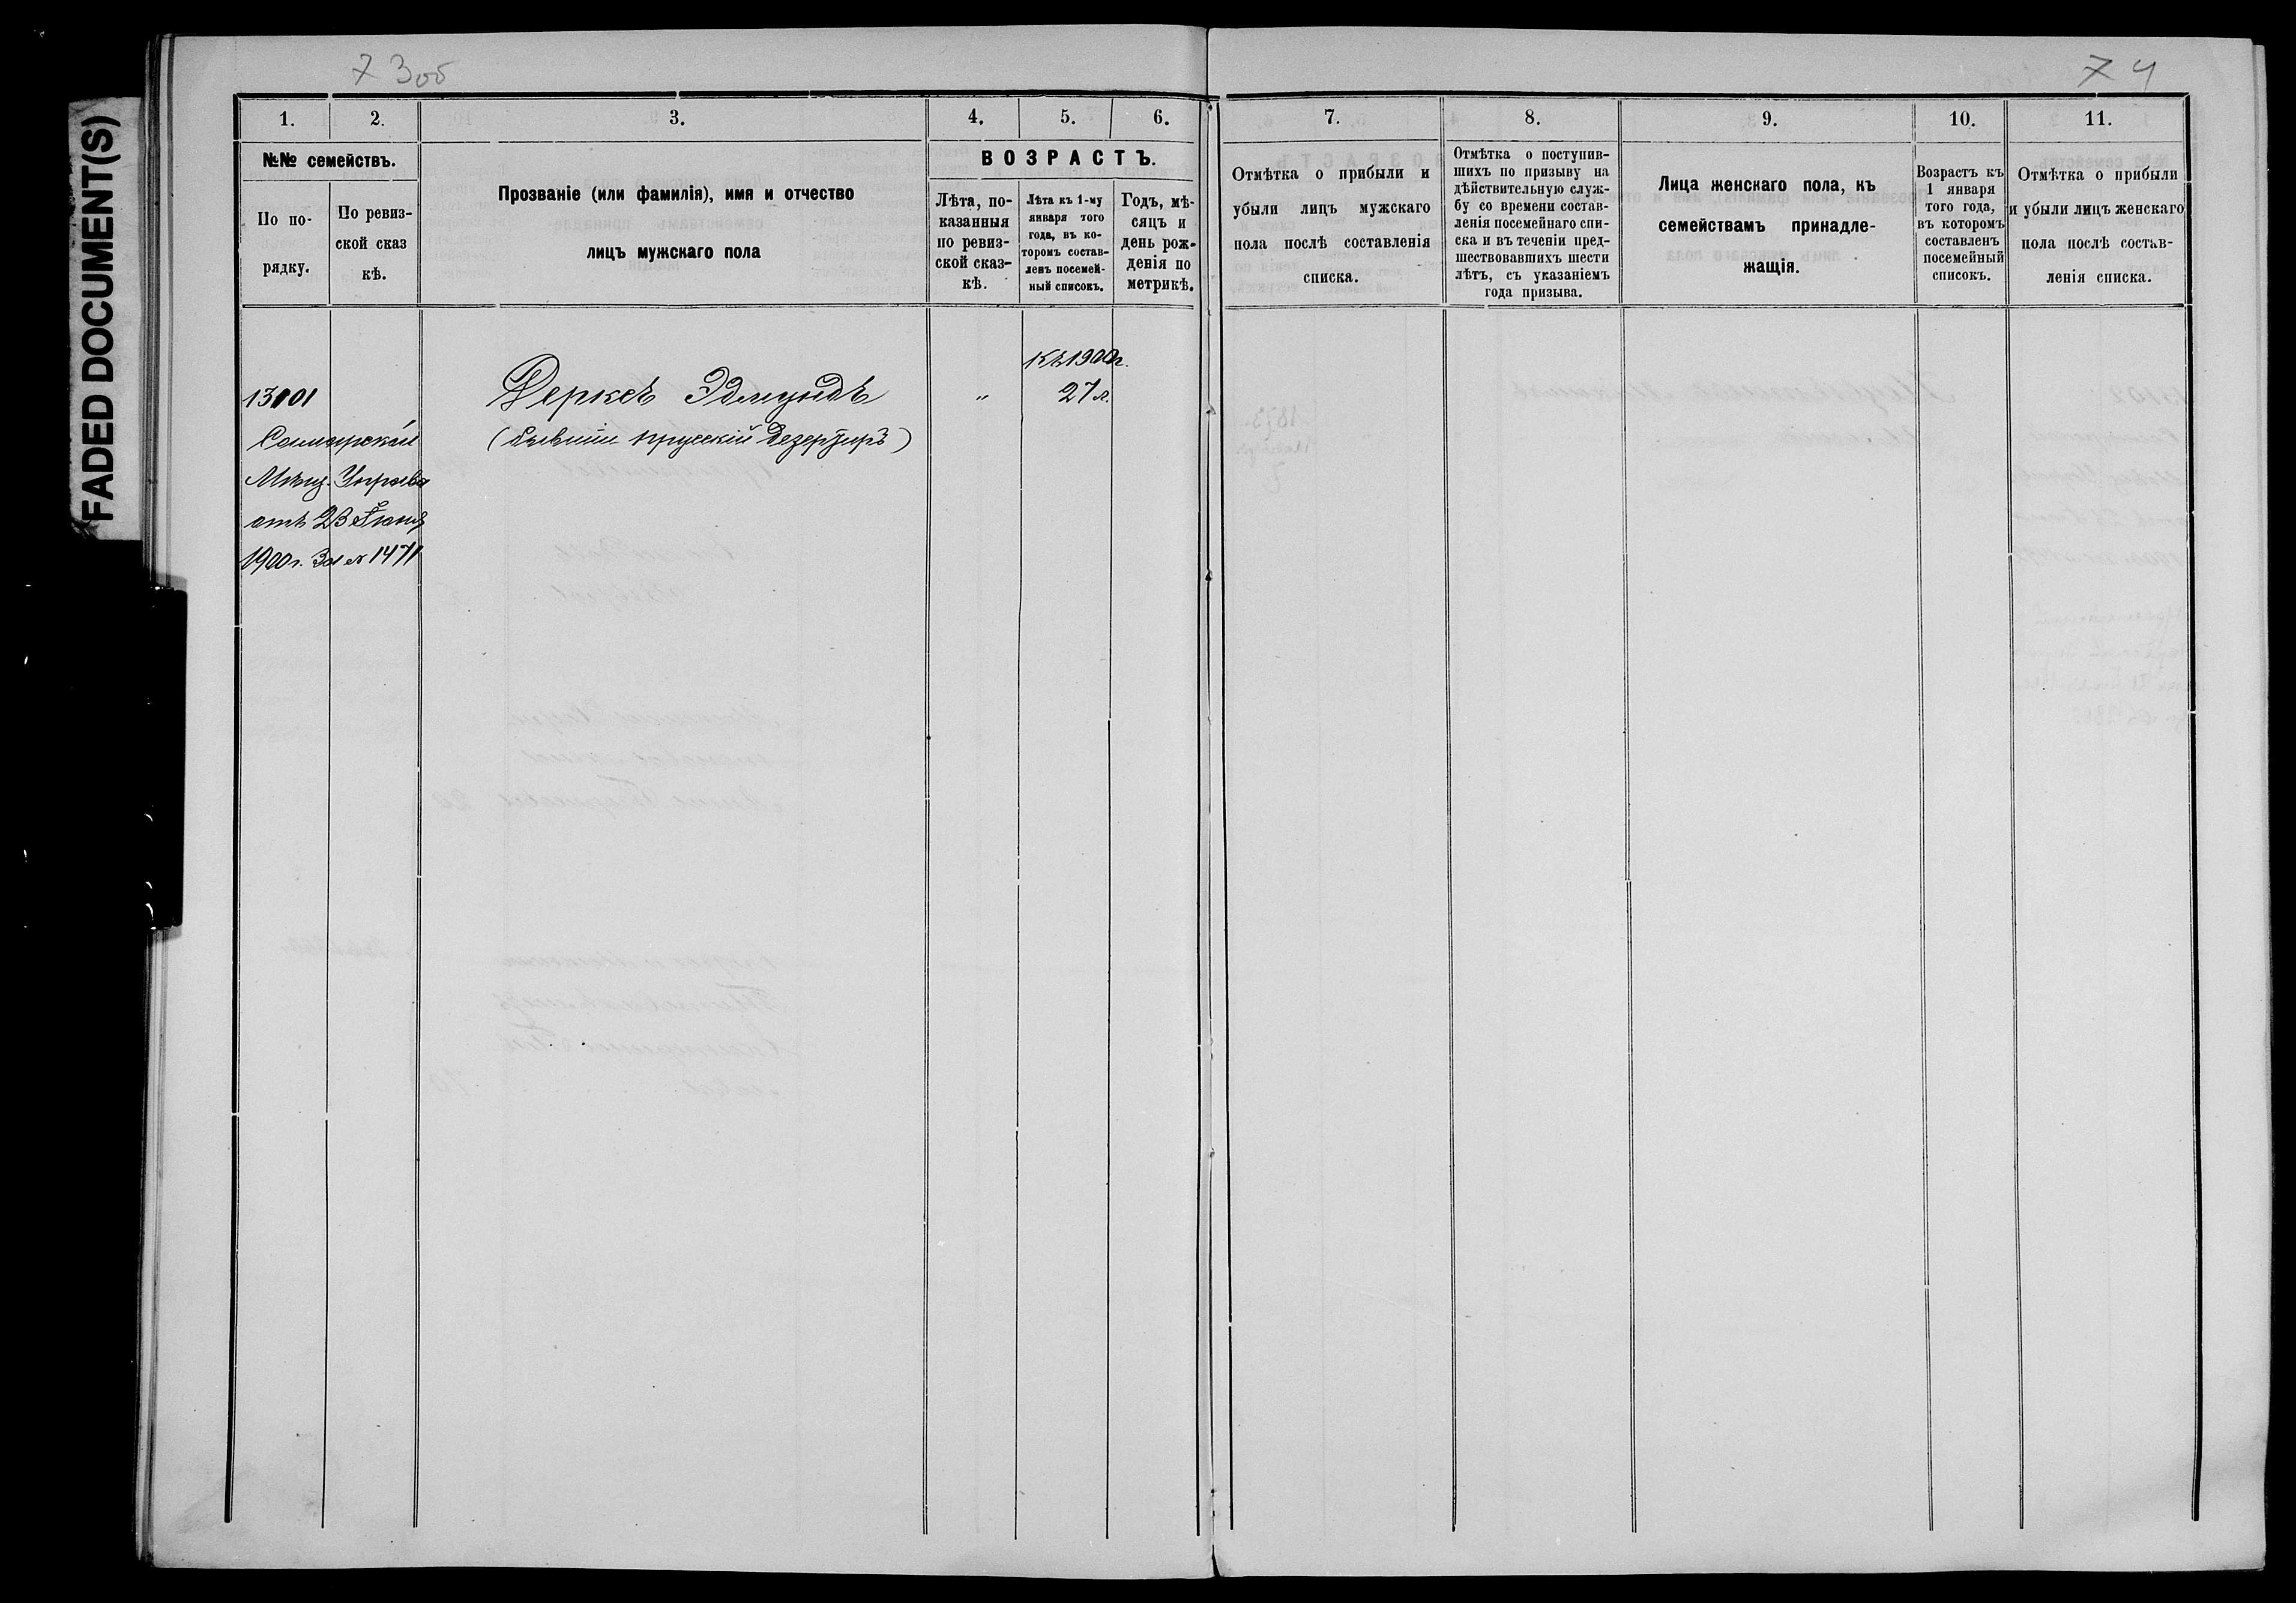 FADED DOCUMENT(S)
73об
74
1.
2.
3.
4.
5.
6.
7.
8.
9.
10.
11.
№№ семействъ.
По по-
рядку.
По ревиз-
ской сказ
кѣ.
Прозваніе (или фамилія), имя и отчество
лицъ мужскаго пола
ВОЗРАСТЪ.
Лѣта, по-
казанныя
по ревиз-
ской сказ-
кѣ.
Лѣта къ 1-му
января того
года, въ ко-
торомъ состав-
ленъ посемей-
ный списокъ.
Годъ, мѣ-
сяцъ и
день рож-
денія по
метрикѣ.
Отмѣтка о прибыли и
убыли лицъ мужскаго
пола послѣ составленія
списка.
Отмѣтка о поступив-
шихъ по призыву на
дѣйствительную служ-
бу со времени состав-
ленія посемейнаго спи-
ска и въ теченіи пред-
шествовавшихъ шести
лѣтъ, съ указаніемъ
года призыва.
Лица женскаго пола, къ
семействамъ принадле-
жащія.
Возрастъ къ
1 января
того года,
въ которомъ
составленъ
посемейный
списокъ.
Отмѣтка о прибыли
и убыли лицъ женскаго
пола послѣ состав-
ленія списка.
Къ 1900 г.
13101
Дерксъ Эдмундъ
"
27 л.
Самарской
(бывшій прусскій дезертиръ)
Мѣщ. Управы
отъ 23 Іюня
1900 г. За № 1471